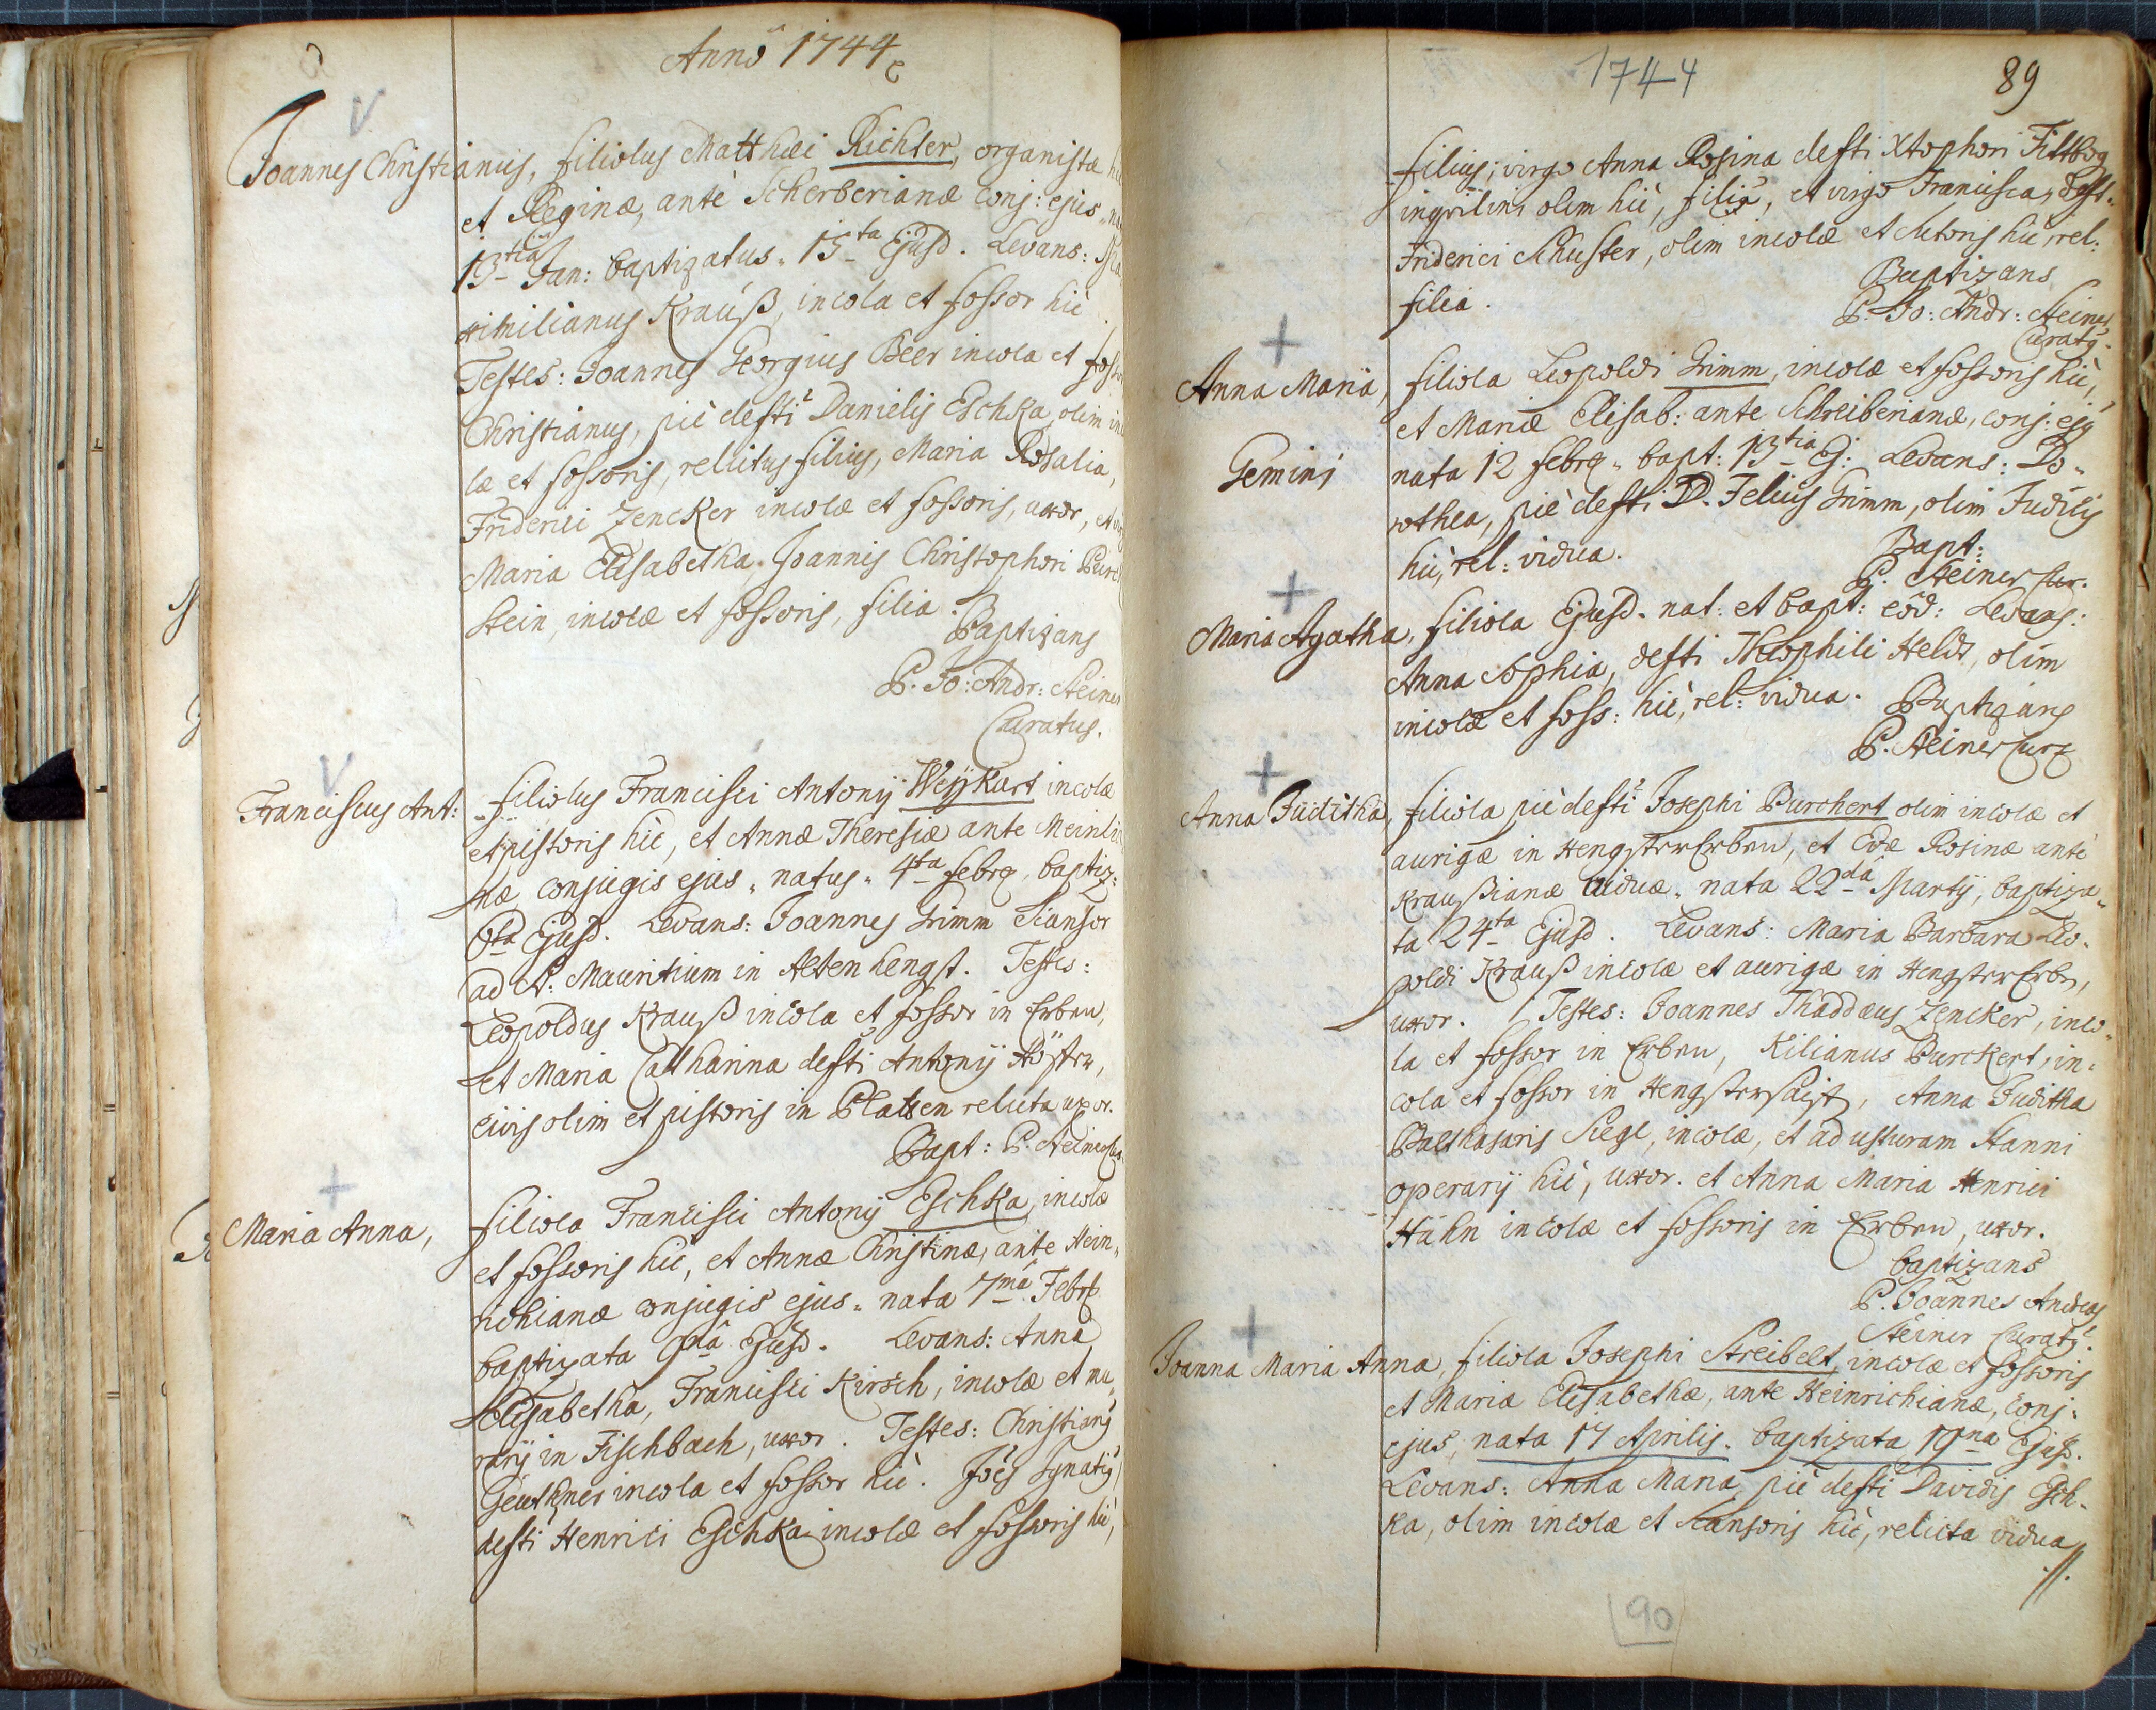 Anno 1744
Joannes Christianus, filiolus Matthæi Richter, organistæ
et Reginæ, ante Scherberianæ conj: ejus
13tia Jan: baptizatus 15ta Ejusd. Levans:
ximilianus Krauß, incola et fossor hic
Testes: Joannes Georgius Beer incola et
Christianus, pie defti Danielis Eschka, olim
læ et fossoris, relictus filius, Maria Rosalia,
Friderici Zencker incolæ et fossoris, uxor,
Maria Elisabetha, Joannis Christophori
stein, incolæ et fossoris, filia.
Baptizans
P. Jo: Andr: Steiner
Curatus.
Franciscus Ant: filiolus Francisci Antonij Weijkart incolæ
et pistoris hic, et Annæ Theresiæ ante
næ conjugis ejus natus 4ta febrç, baptiz:
6ta Ejusd. Levans: Joannes Grimm Scansor
ad S: Mauritium in Altenhengst. Testes:
Leopoldus Krauß incola et fossor in Erben,
et Maria Catharina defti Antonij
civis olim et pistoris in Platten relicta uxor.
Bapt: P. Steiner
Maria Anna, filiola Francisci Antonij Eschka, incolæ
et fossoris hic, et Annæ Christinæ, ante Hein-
richianæ conjugis ejus nata 7ma Febr
baptizata 9na Ejusd. Levans: Anna
Elisabetha, Francisci Kirsch, incolæ et mu-
rarij in Fischbach, uxor. Testes: Christiang
incola et fossor hic. Joes Ignatig
defti Henrici Eschka incolæ et fossoris hic,
1744 89
filius; virgo Anna Rosina defti Xtophori
olim hic, filia, et virgo Francisca, deft:
Friderici Schuster, olim incolæ et Sutoris hic, rel:
filia.
Baptizans
P. Jo: Andr: Steiner
Curatg.
Anna Maria, filiola Leopoldi Grimm, incolæ et fossoris hic,
et Mariæ Elisab: ante Schreiberianæ, conj: ejg
Gemini nata 12 febrç bapt: 13tia Ej: Levans: Do-
rothea, pie defti D. Felicis Grimm, olim Judicis
hic, rel: vidua.
Bapt:
P. Steiner Cur.
Maria Agatha, filiola Ejusd. nat: et bapt: eod: Levans:
Anna Sophia, defti Theophili Held, olim
incolæ et foss: hic, rel: vidua. Baptizans
P. Steiner
Anna Juditha, filiola pie defti Josephi Burchert olim incolæ et
aurigæ in HengsterErben, et Evæ Rosinæ ante
Kraußianæ viduæ. nata 22da Martij, baptiza-
ta 24ta Ejusd. Levans: Maria Barbara Leo-
poldi Krauß incolæ et aurigæ in HengsterErbn,
uxor. Testes: Joannes Thaddæus Zencker, inco-
la et fossor in Erben, Kilianus Burckert, in-
cola et fossor in Anna Juditha
Balthasaris Siegl, incolæ, et ad usturam Stanni
operarij hic, uxor. et Anna Maria Henrici
Hahn incolæ et fossoris in Erben, uxor.
baptizans
P. Joannes Andreas
Steiner Curatg.
Joanna Maria Anna, filiola Josephi Streibelt, incolæ et fossoris
et Mariæ Elisabethæ, ante Heinrichianæ, conj:
ejus, nata 17 Aprilis. baptizata 19na Ejusd.
Levans: Anna Maria, pie defti Davidis Esch-
ka, olim incolæ et Scansoris hic, relicta vidua
90